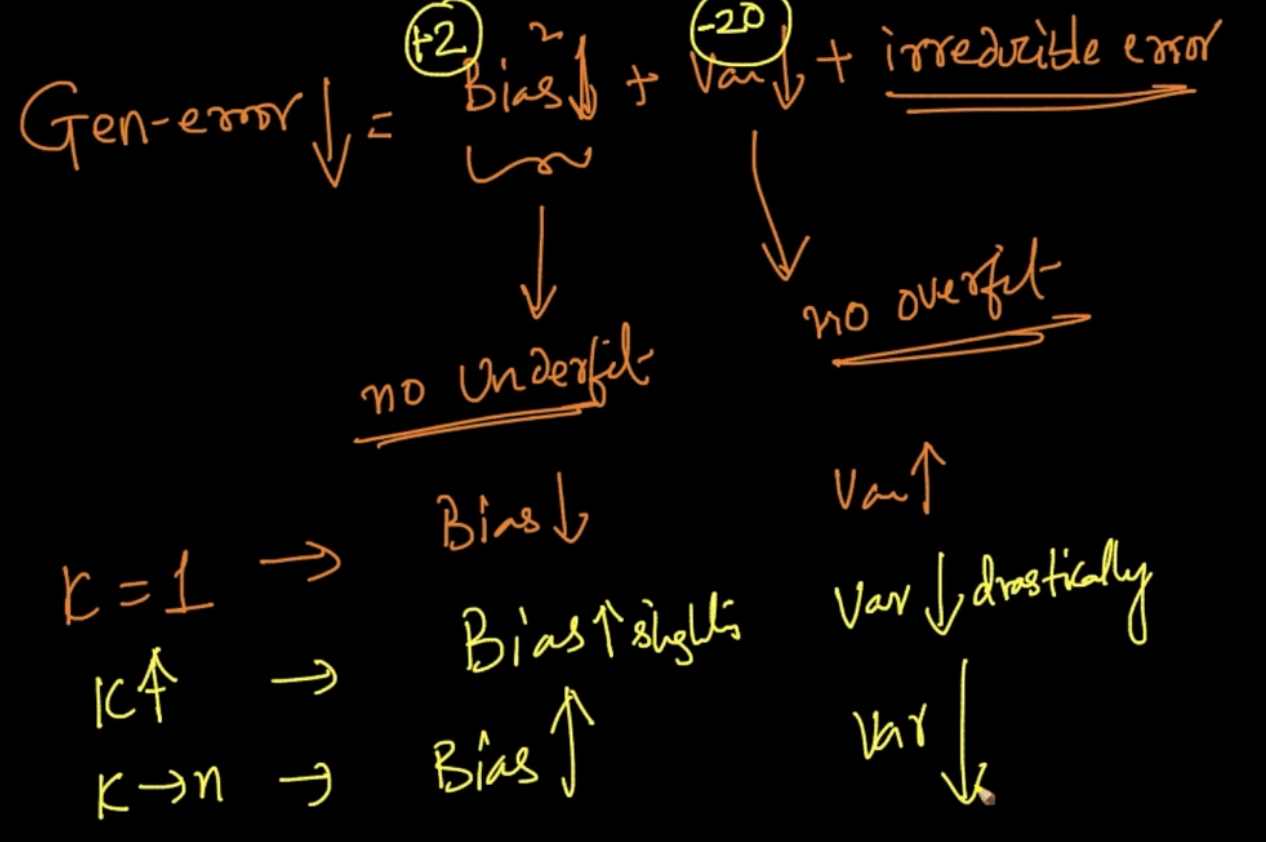 +2 -20
Gen-error ↓ = Bias² ↓ + Var ↓ + irreducible error
no Underfit no overfit
K = 1 → Bias ↓ Var ↑
K ↑ → Bias ↑ slightly Var ↓ drastically
K → n → Bias ↑ Var ↓